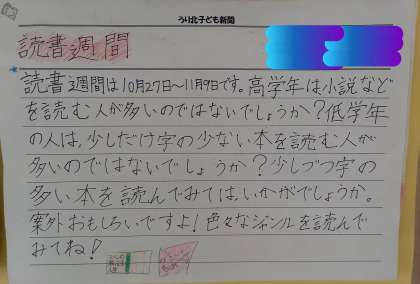 うり北子ども新聞
読書週間
読書週間は10月27日～11月9日です。高学年は小説など
を読む人が多いのではないでしょうか？低学年
の人は、少しだけ字の少ない本を読む人が
多いのではないでしょうか？少しづつ字の
多い本を読んでみてはいかがでしょうか。
案外おもしろいですよ！色々なジャンルを読んで
みてね！